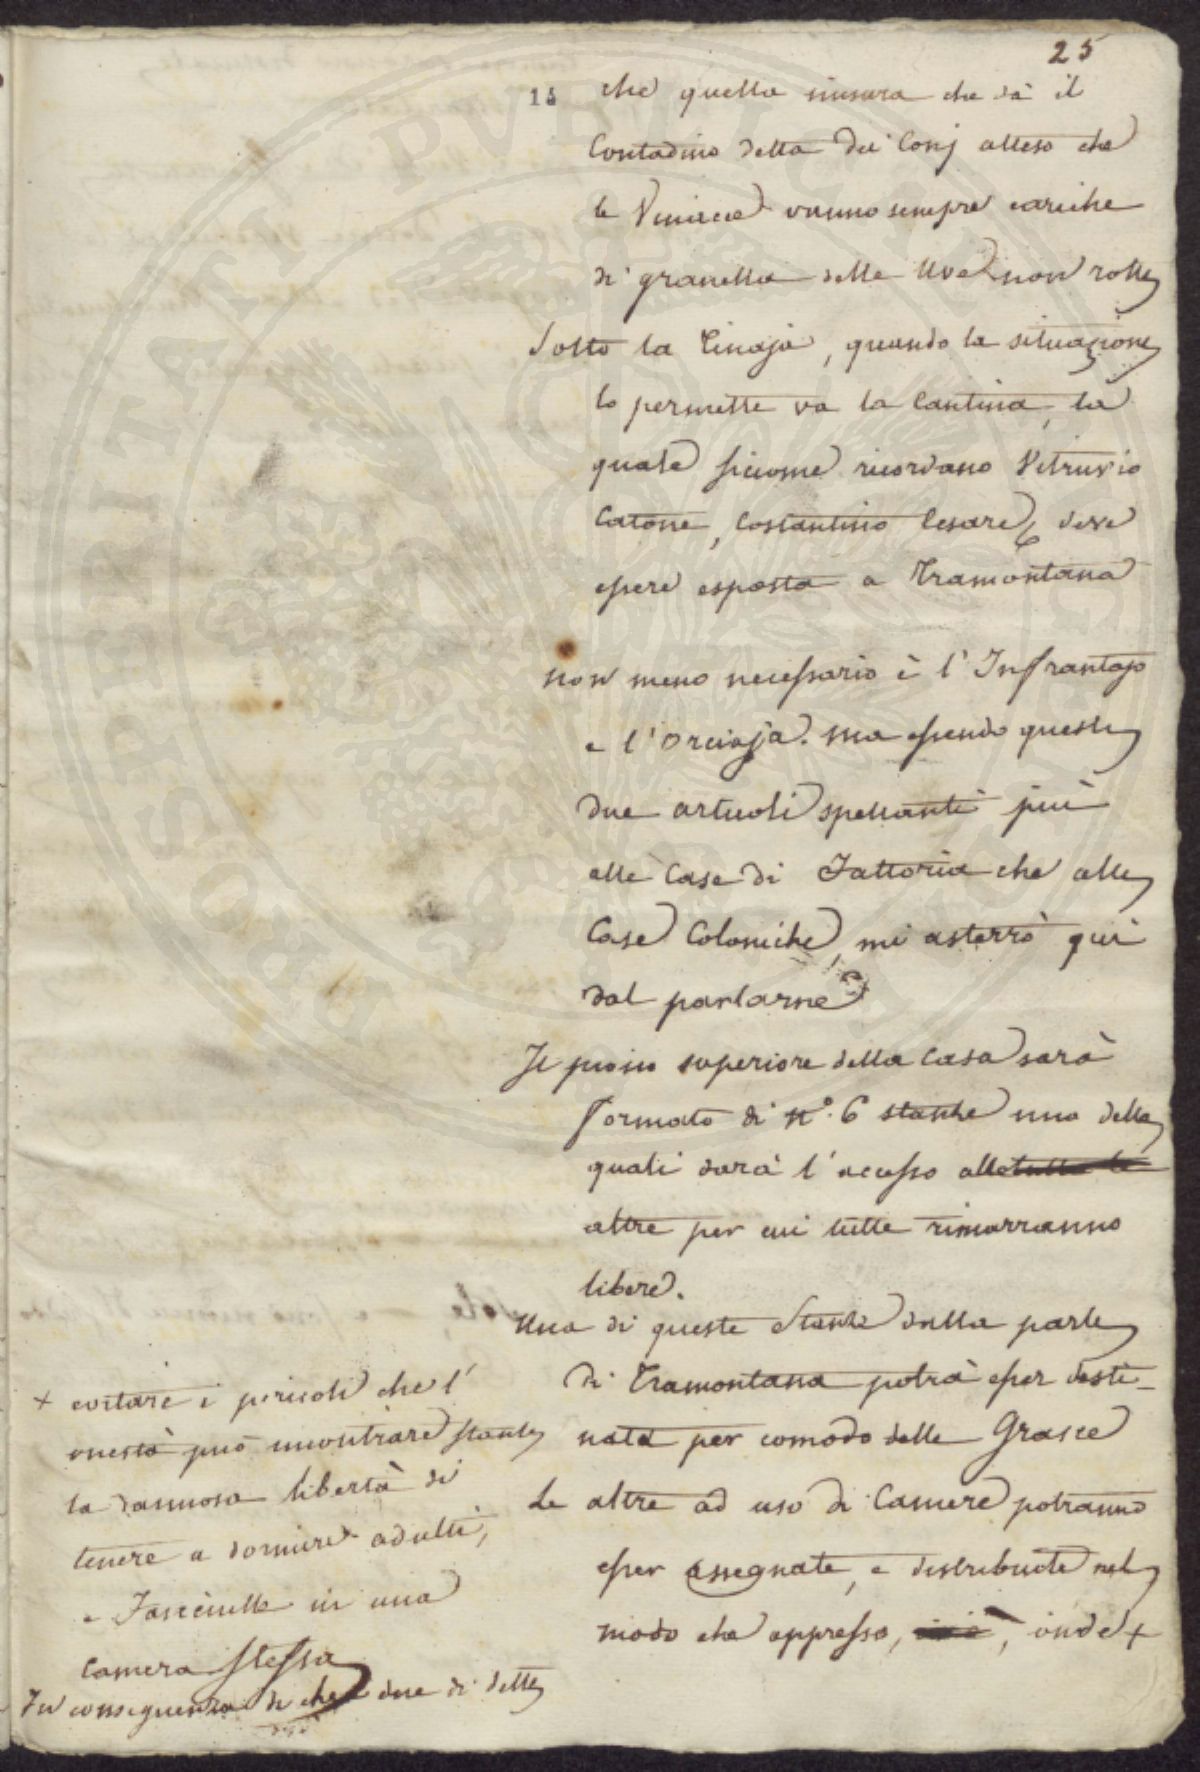 25
15
che quella misura che dà il
Contadino detta dei Conj atteso che
le Vinacce vanno sempre cariche
di granella delle Uve non rotte
Sotto la Tinaja, quando la situazione
lo permette va la Cantina, la
quale siccome ricordano Vitruvio
Catone, Costantino Cesare, deve
essere esposta a Tramontana
non meno necessario è l'Infrantojo
e l'Orciaja. ma essendo questi
due articoli spettanti più
alle Case di Fattoria che alle
Case Coloniche, mi asterrò qui
dal parlarne
Il piano superiore della Casa sarà
formato di n.º 6 stanze una delle
quali darà l'accesso alle tutte le
altre per cui tutte rimarranno
libere.
Una di queste Stanze dalla parte
di Tramontana potrà esser desti-
nata per comodo delle Grasce
Le altre ad uso di Camere potranno
esser assegnate, e distribuite nel
modo che appresso, onde +
+ evitare i pericoli che l'
onestà può incontrare stante
la dannosa libertà di
tenere a dormire adulti,
e Fanciulle in una
Camera stessa
In conseguenza di che due di dette